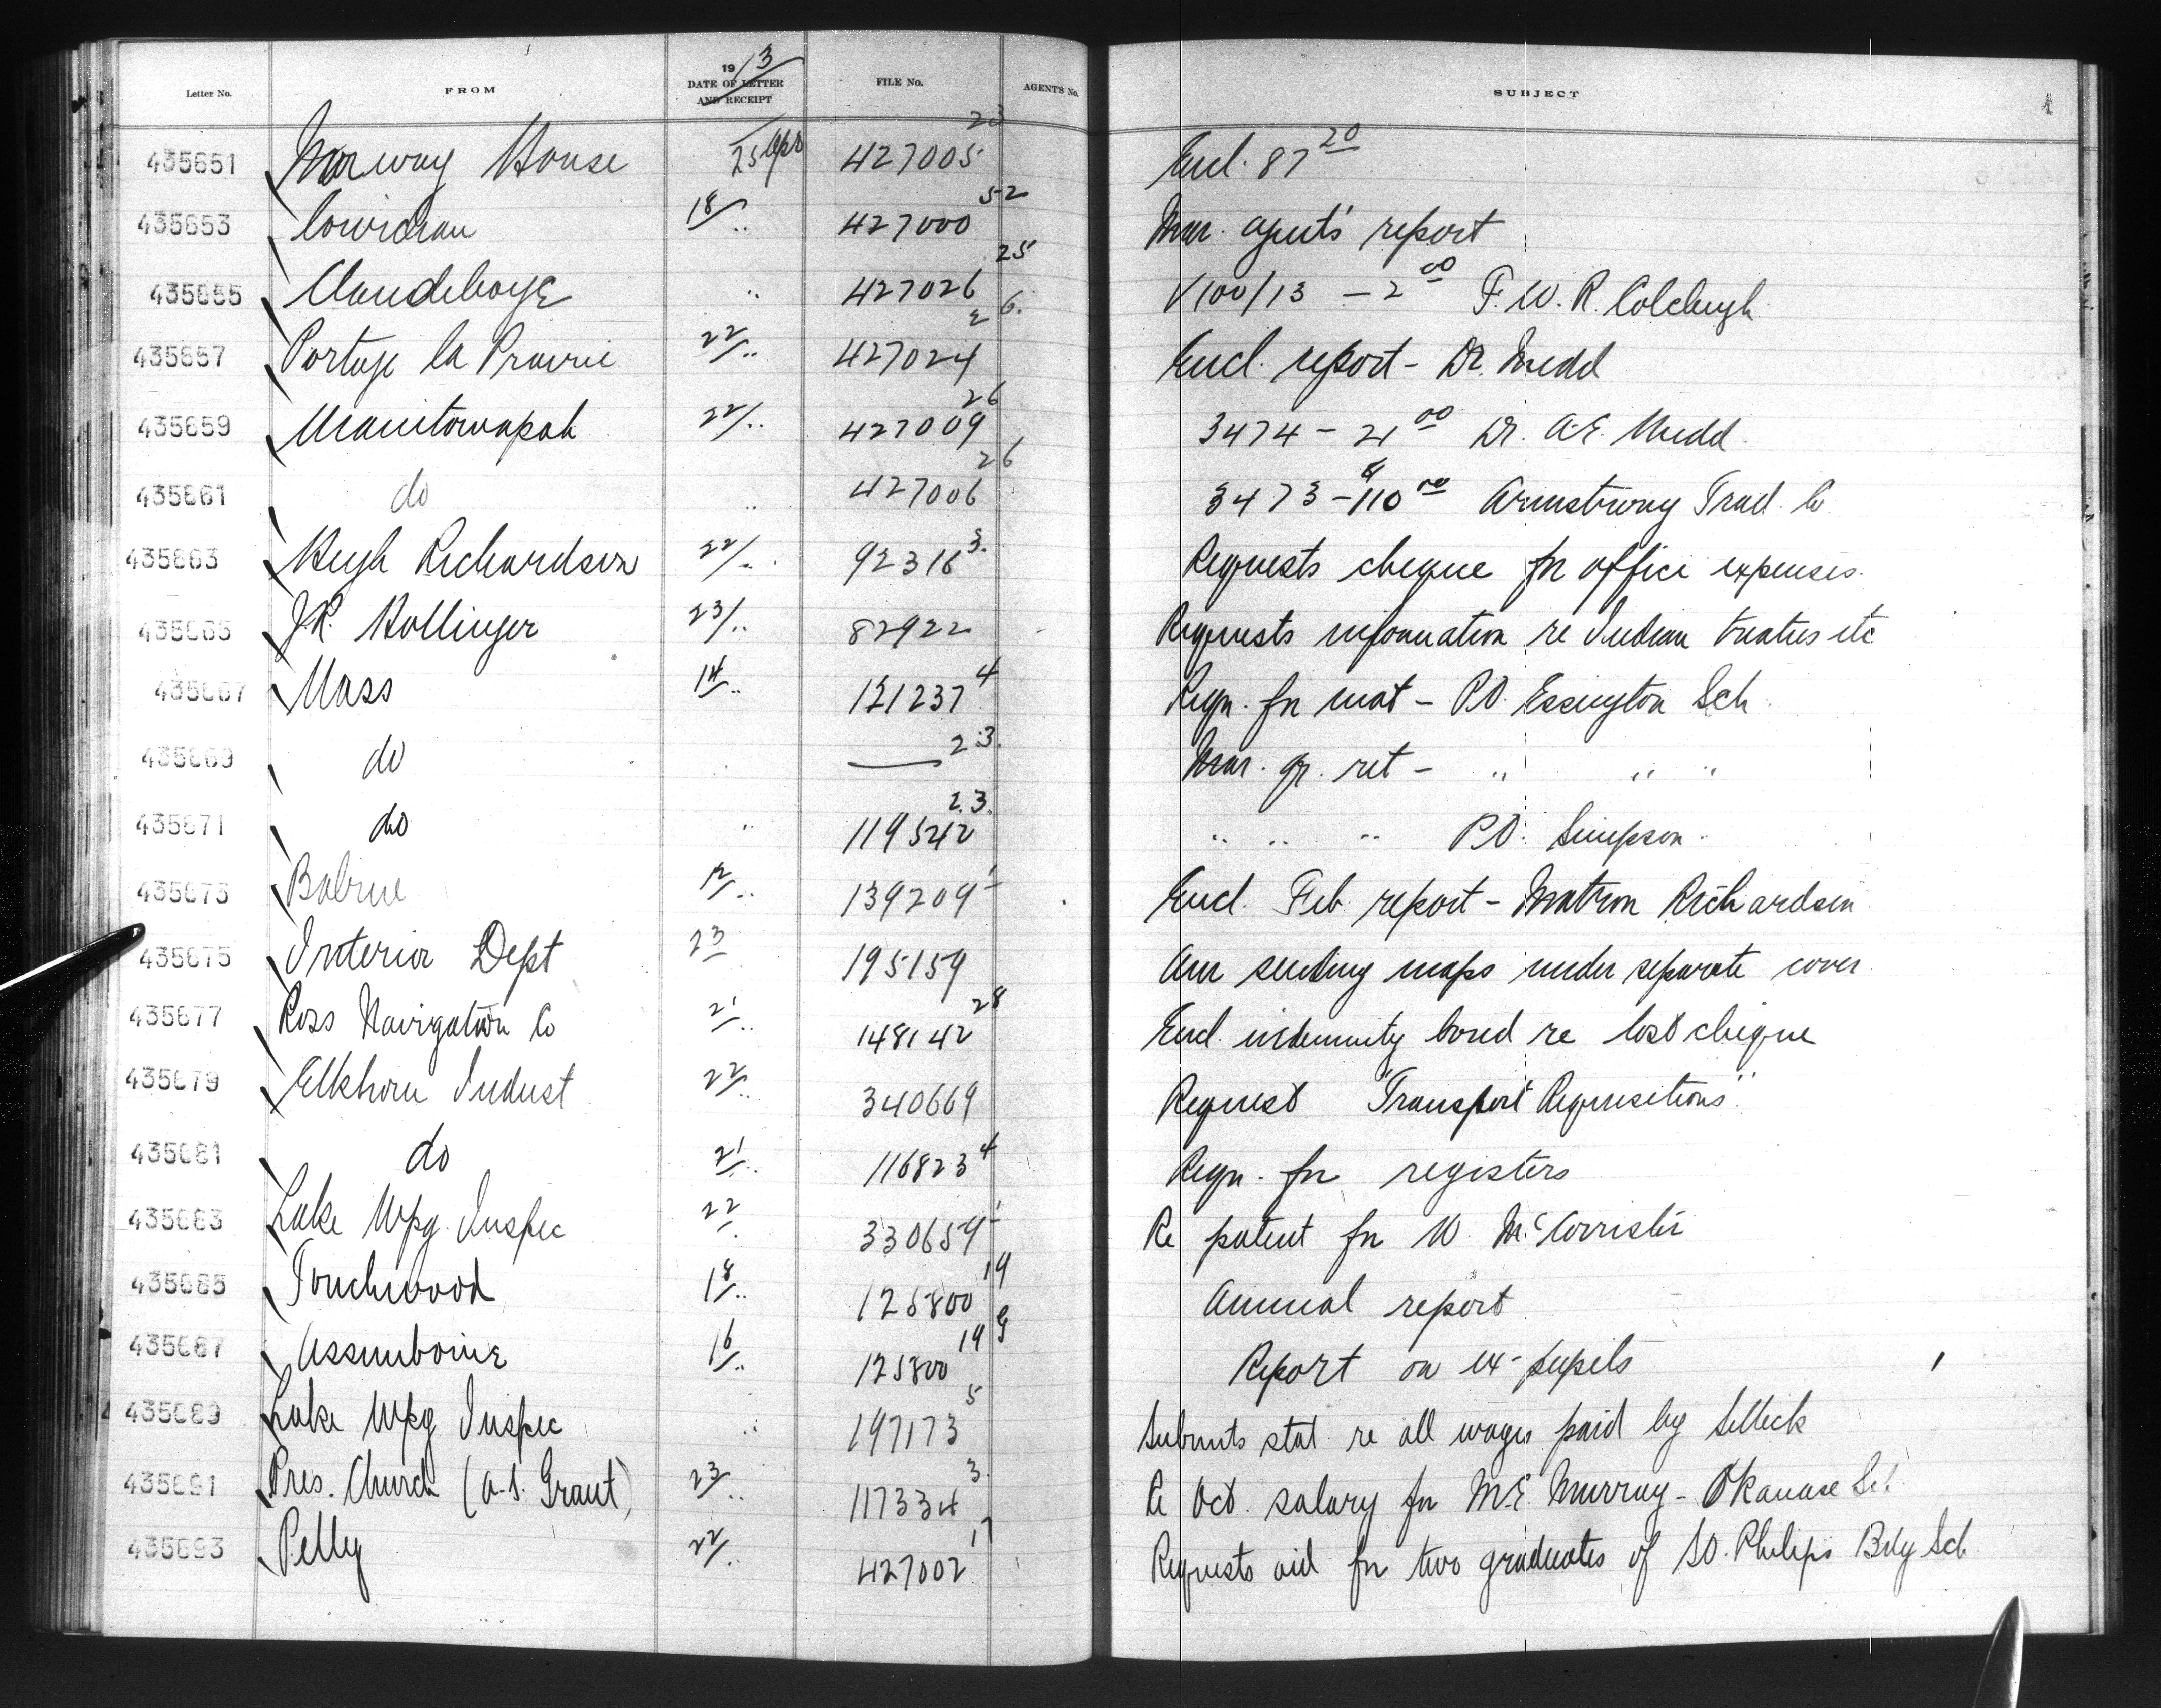 Letter No. FROM 1913 DATE OF LETTER AND RECEIPT FILE No. AGENT'S No. SUBJECT
435651 Norway House 25 Apr 427005 23 Encl. 87 20
435653 Cowichan 18/ .. 427000 52 Mar. agent's report
435655 Clandeboye .. 427026 25 V100/13 - 2 00 F. W. R. Colcleugh
435657 Portage la Prairie 22/ .. 427024 26 Encl. report - Dr. Medd
435659 Manitowapah 22/ .. 427009 26 3474 - 21 00 Dr. A.E. Medd
435661 do .. 427006 26 3473 - 110 00 Armstrong Trad. Co
435663 Hugh Richardson 22/ .. 92316 3 Requests cheque for office expenses.
435665 J.R. Hollinger 23/ .. 82922 Requests information re Indian treaties etc
435667 Nass 14/ .. 121237 4 Reqn. for mat - Pt. Essington Sch
435669 do — 23 Mar. qr. ret - .. .. ..
435671 do .. 119542 23 .. .. .. Pt. Simpson
435673 Babine 12/ .. 139209 1 Encl. Feb. report - Matron Richardson
435675 Interior Dept 23 195159 Am sending maps under separate cover
435677 Ross Navigation Co 21/ .. 148142 28 Encl. indemnity bond re lost cheque
435679 Elkhorn Indust 22/ .. 340669 Request "Transport Requisitions"
435681 do 21/ .. 116823 4 Reqn. for registers
435683 Lake Wpg. Inspec 22/ . 330659 1 Re patent for W. McCorrister
435685 Touchwood 18/ .. 125800 19 Annual report
435687 Assiniboine 16/ .. 125800 19 Report on ex-pupils
435689 Lake Wpg Inspec .. 197173 5 Submits stat. re all wages paid by Selleck
435691 Pres. Church (A.S. Grant) 23/ .. 117334 3 Re Oct. salary for M.E. Murray - Okanase Sch
435693 Pelly 22/ .. 427002 17 Requests aid for two graduates of St. Philips Bdg Sch